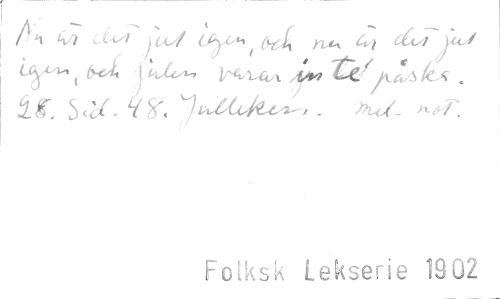 Nu är det jul igen, och nu är det jul
igen, och julen varar inte påska.
28. Sid. 48. Jullekar. mel. not.
Folksk Lekserie 1902